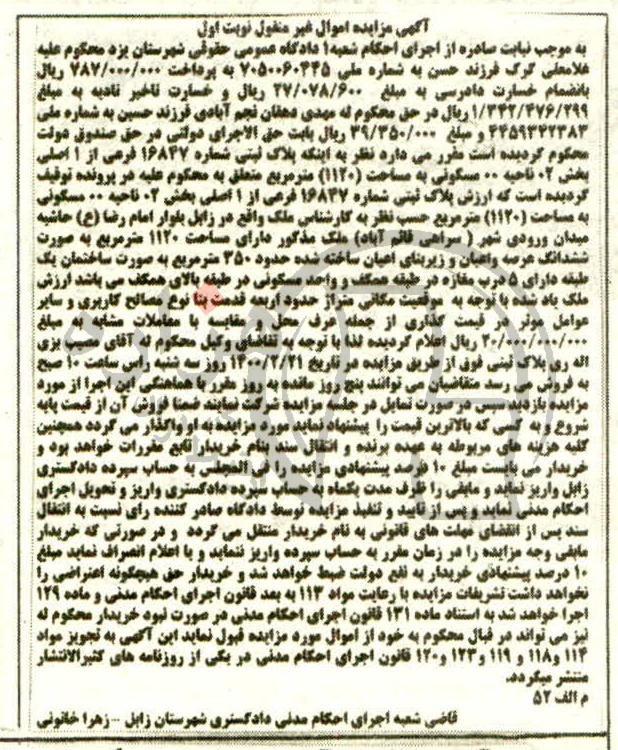 آگهی مزایده اموال غیر منقول نوبت اول
به موجب نیابت صادره از اجرای احکام شعبه۱ دادگاه عمومی حقوقی شهرستان یزد محکوم علیه
غلامعلی گرگ فرزند حسن به شماره ملی ۷۰۵۰۰۶۰۴۴۵ به پرداخت ۷۸۷/۰۰۰/۰۰۰ ریال
بانضمام خسارت دادرسی به مبلغ ۲۷/۰۷۸/۶۰۰ ریال و خسارت تاخیر تادیه به مبلغ
۱/۳۴۲/۴۷۶/۲۹۹ ریال در حق محکوم له مهدی دهقان نجم آبادی فرزند حسین به شماره ملی
۴۴۵۹۳۴۲۳۸۳ و مبلغ ۳۹/۳۵۰/۰۰۰ ریال بابت حق الاجرای دولتی در حق صندوق دولت
محکوم گردیده است مقرر می دارد نظر به اینکه پلاک ثبتی شماره ۱۶۸۴۷ فرعی از ۱ اصلی
بخش ۰۲ ناحیه ۰۰ مسکونی به مساحت (۱۱۲۰) مترمربع متعلق به محکوم علیه در پرونده توقیف
گردیده است که ارزش پلاک ثبتی شماره ۱۶۸۴۷ فرعی از ۱ اصلی بخش ۰۲ ناحیه ۰۰ مسکونی
به مساحت (۱۱۲۰) مترمربع حسب نظر به کارشناس ملک واقع در زابل بلوار امام رضا (ع) حاشیه
میدان ورودی شهر ( سراهی قائم آباد) ملک مذکور دارای مساحت ۱۱۲۰ مترمربع به صورت
ششدانگ عرصه واعیان و زیربنای اعیان ساخته شده حدود ۳۵۰ مترمربع به صورت ساختمان یک
طبقه دارای ۵ درب مغازه در طبقه همکف و واحد مسکونی در طبقه بالای همکف می باشد ارزش
ملک یاد شده با توجه به موقعیت مکانی متراژ حدود اربعه قدمت بنا نوع مصالح کاربری و سایر
عوامل موثر در قیمت گذاری از جمله عرف محل و مقایسه با معاملات مشابه به مبلغ
۲۰/۰۰۰/۰۰۰/۰۰۰ ریال اعلام گردیده لذا با توجه به تقاضای وکیل محکوم له آقای مصیب بزی
اله ری پلاک ثبتی فوق از طریق مزایده در تاریخ ۱۴۰۰/۲/۲۱ روز سه شنبه راس ساعت ۱۰ صبح
به فروش می رسد متقاضیان می توانند پنج روز مانده به روز مقرر با هماهنگی این اجرا از مورد
مزایده بازدید سپس در صورت تمایل در جلسه مزایده شرکت نمایند ضمنا فروش آن از قیمت پایه
شروع و به کسی که بالاترین قیمت را پیشنهاد نماید مورد مزایده به او واگذار می گردد همچنین
کلیه هزینه های مربوطه به عهده برنده و انتقال سند بنام خریدار تابع مقررات خواهد بود و
خریدار می بایست مبلغ ۱۰ درصد پیشنهادی مزایده را فی المجلس به حساب سپرده دادگستری
زابل واریز نماید و مابقی را ظرف مدت یکماه به حساب سپرده دادگستری واریز و تحویل اجرای
احکام مدنی نماید و پس از تایید و تنفیذ مزایده توسط دادگاه صادر کننده رای نسبت به انتقال
سند پس از انقضای مهلت های قانونی به نام خریدار منتقل می گردد و در صورتی که خریدار
مابقی وجه مزایده را در زمان مقرر به حساب سپرده واریز ننماید و یا اعلام انصراف نماید مبلغ
۱۰ درصد پیشنهادی خریدار به نفع دولت ضبط خواهد شد و خریدار حق هیچگونه اعتراضی را
نخواهد داشت تشریفات مزایده با رعایت مواد ۱۱۳ به بعد قانون اجرای احکام مدنی و ماده ۱۲۹
اجرا خواهد شد به استناد ماده ۱۳۱ قانون اجرای احکام مدنی در صورت نبود خریدار محکوم له
نیز می تواند در قبال محکوم به خود از اموال مورد مزایده قبول نماید این آگهی به تجویز مواد
۱۱۴ و۱۱۸ و ۱۱۹ و۱۲۳ و۱۲۰ قانون اجرای احکام مدنی در یکی از روزنامه های کثیرالانتشار
منتشر میگردد.
م الف ۵۲
قاضی شعبه اجرای احکام مدنی دادگستری شهرستان زابل -زهرا خاتونی